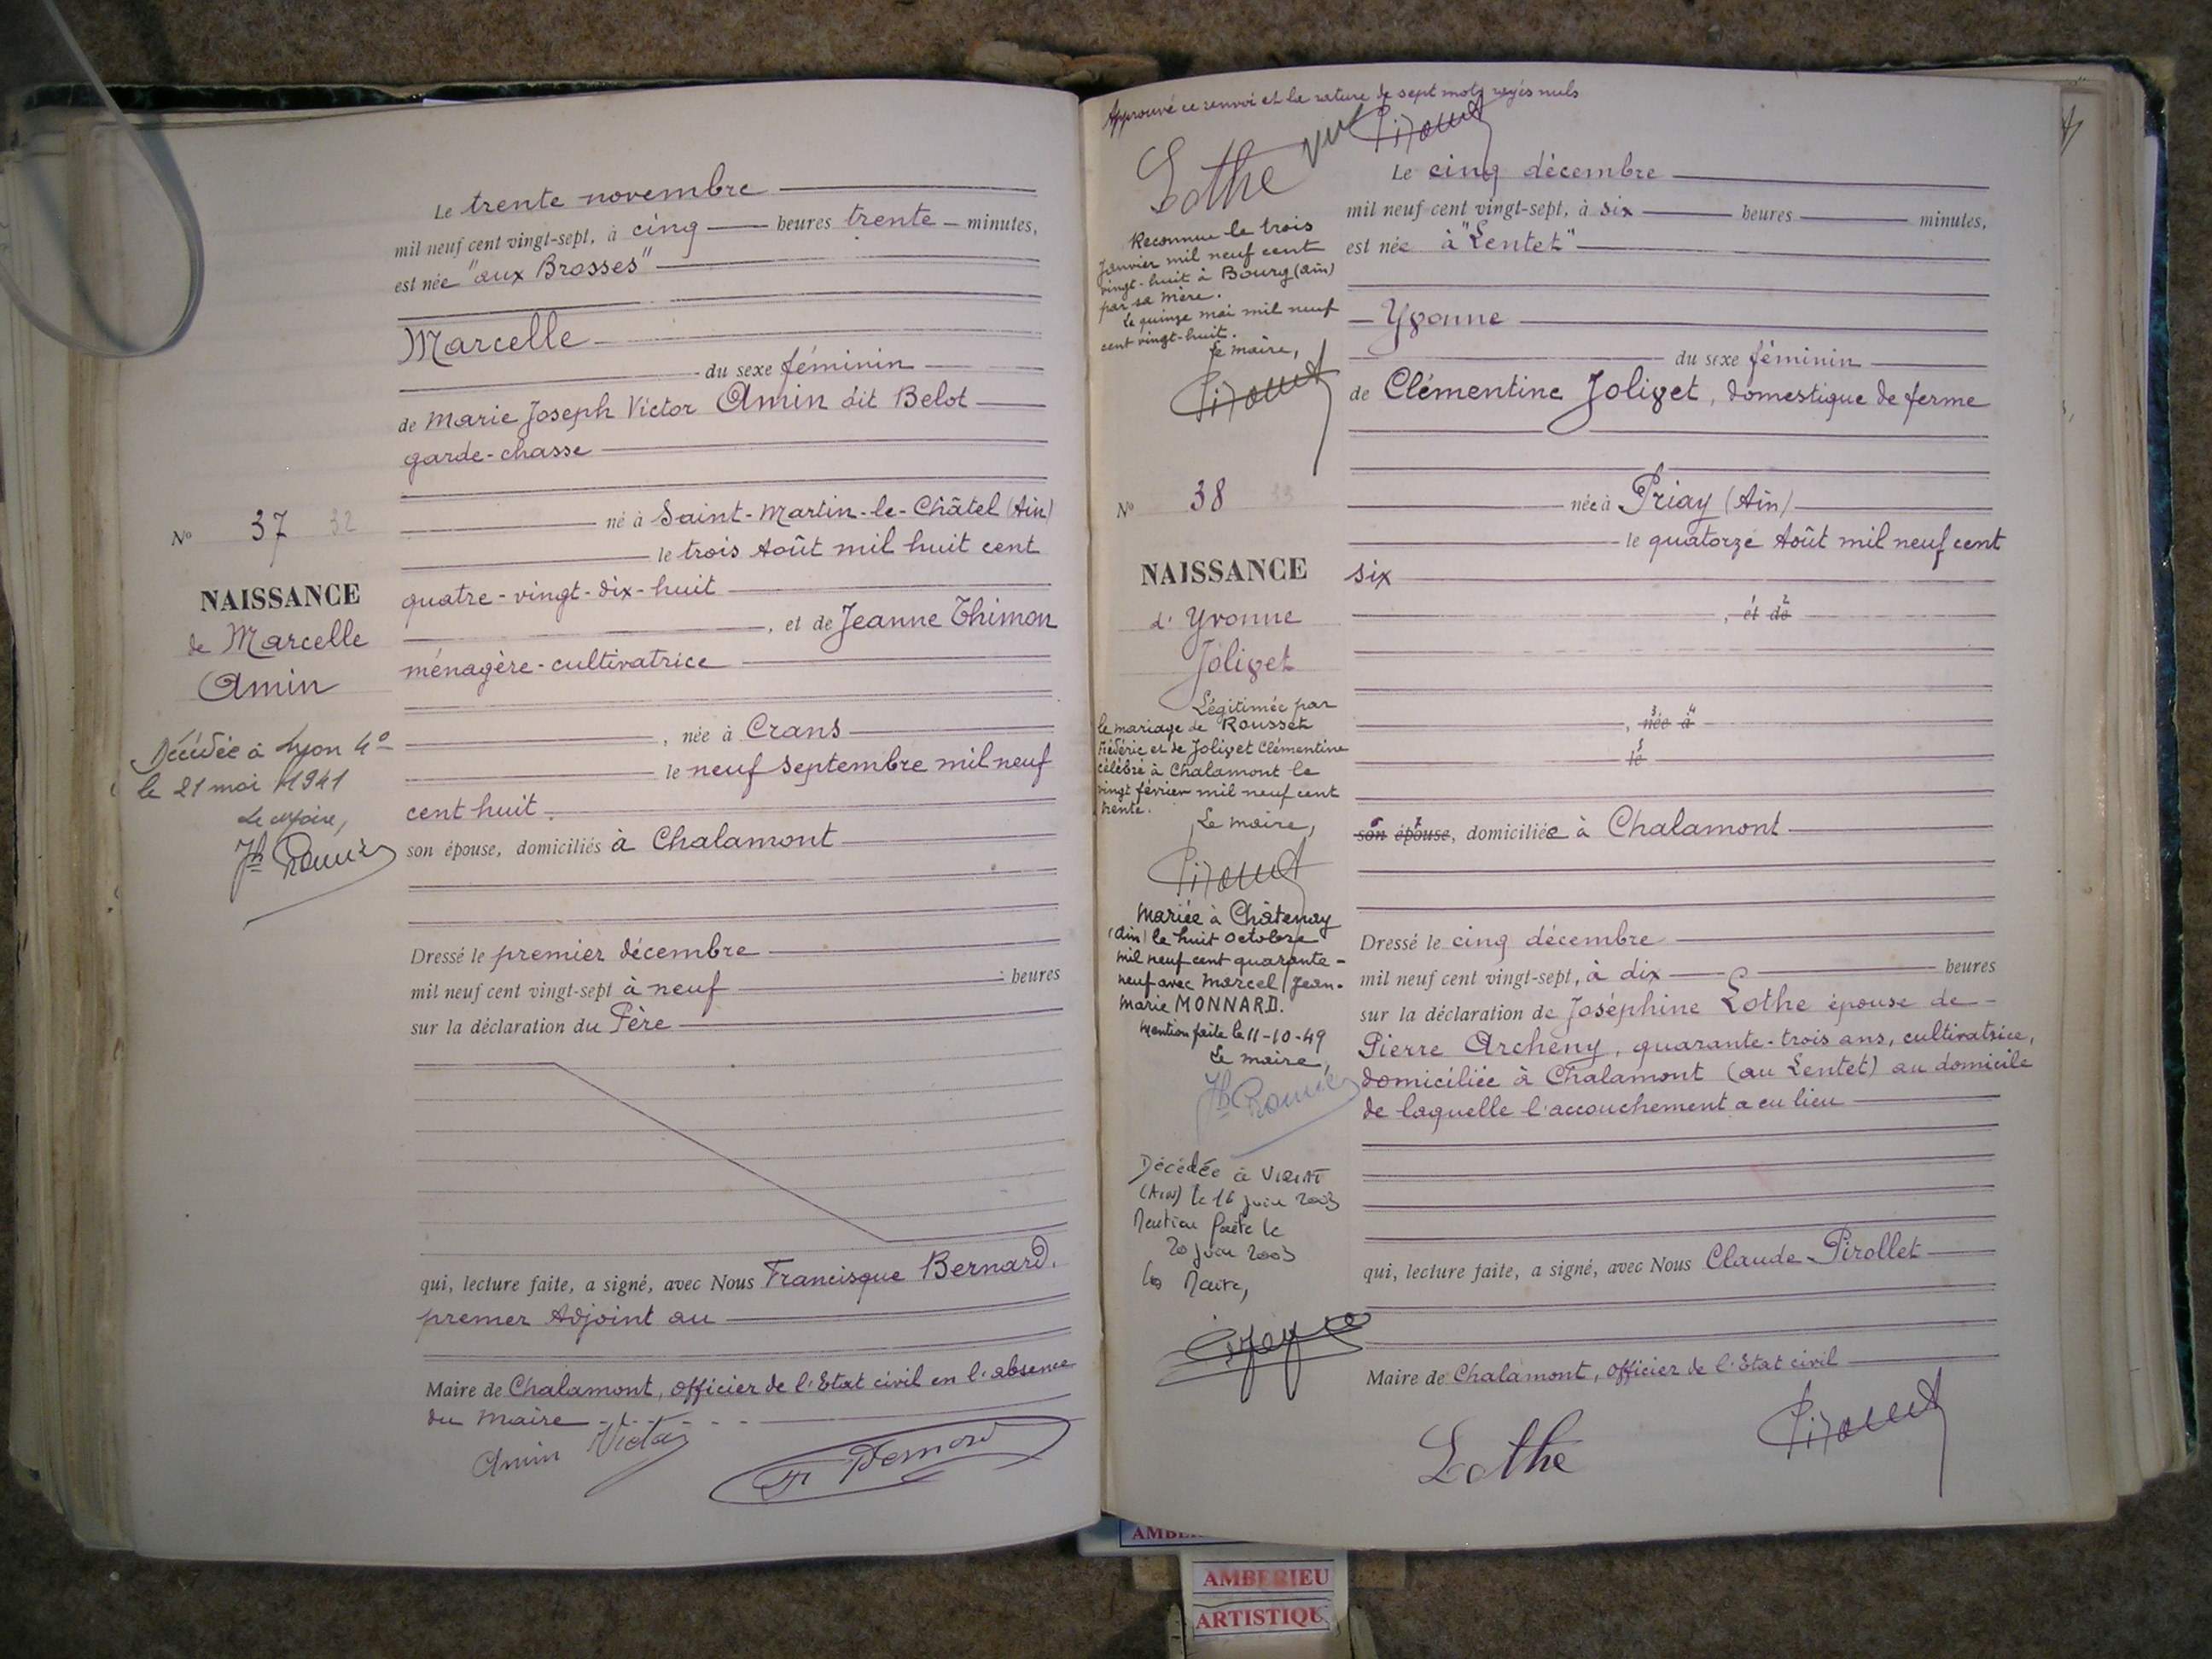 Le trente novembre
mil neuf cent vingt-sept, à cinq heures trente minutes,
est née "aux Brosses"
Marcelle
du sexe féminin
de Marie Joseph Victor Amin dit Belot
garde-chasse
né à Saint-Martin-le-Châtel (Ain)
le trois Août mil huit cent
quatre-vingt-dix-huit
, et de Jeanne Thimon
ménagère-cultivatrice
, née à Crans
le neuf septembre mil neuf
cent huit
son épouse, domiciliés à Chalamont
Dressé le premier décembre
mil neuf cent vingt-sept à neuf heures
sur la déclaration du Père
qui, lecture faite, a signé, avec Nous Francisque Bernard,
premier Adjoint au
Maire de Chalamont, officier de l'Etat civil en l'absence
du Maire
Amin Victor
Fr Bernard
No 37 32
NAISSANCE
de Marcelle
Amin
Décédée à Lyon 4e
le 21 mai 1941
Le Maire,
Approuvé ce renvoi et la rature de sept mots rayés nuls
Lothe vu Pirollet
Reconnue le trois
Janvier mil neuf cent
vingt-huit à Bourg (Ain)
par sa mère.
Le quinze mai mil neuf
cent vingt-huit.
Le maire,
Pirollet
No 38 33
NAISSANCE
d' Yvonne
Jolivet
Légitimée par
le mariage de Rousset
Frédéric et de Jolivet Clémentine
célébré à Chalamont le
vingt février mil neuf cent
trente.
Le maire,
Pirollet
Mariée à Châtenay
(Ain) le huit octobre
mil neuf cent quarante-
neuf avec Marcel Jean-
Marie MONNARD.
Mention faite le 11-10-49
Le maire,
Décédée à VIRIAT
(Ain) le 16 juin 2003
Mention faite le
20 juin 2003
Le Maire,
Le cinq décembre
mil neuf cent vingt-sept, à six heures minutes,
est née à "Lentet"
Yvonne
du sexe féminin
de Clémentine Jolivet, domestique de ferme
née à Priay (Ain)
le quatorze Août mil neuf cent
six
1 2
, et de
3 4
, née à
5
le
6 7
son épouse, domiciliée à Chalamont
Dressé le cinq décembre
mil neuf cent vingt-sept, à dix heures
sur la déclaration de Joséphine Lothe épouse de
Pierre Archeny, quarante-trois ans, cultivatrice,
domiciliée à Chalamont (au Lentet) au domicile
de laquelle l'accouchement a eu lieu
qui, lecture faite, a signé, avec Nous Claude Pirollet
Maire de Chalamont, officier de l'Etat civil
Lothe Pirollet
AMBERIEU
ARTISTIQU